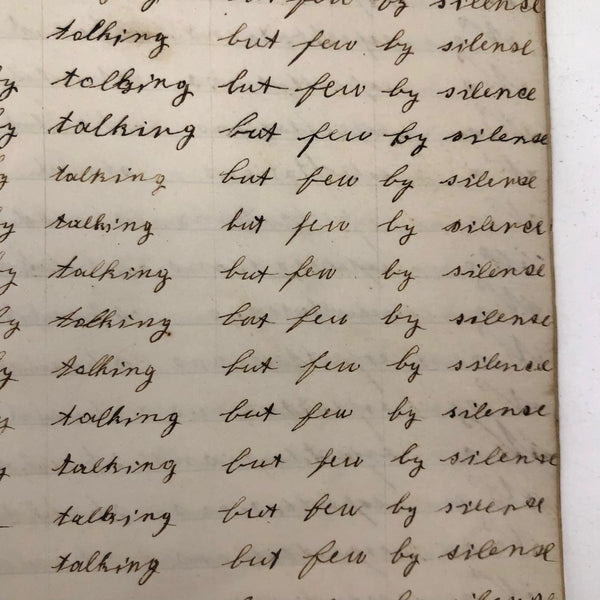 but few by silence
talking but few by silense
by talking but few by silence
by talking but few by silense
by talking but few by silense
by talking but few by silence
by talking but few by silense
by talking but few by silense
by talking but few by silence
y talking but few by silense
y talking but few by silense
talking but few by silense
talking but few by silense